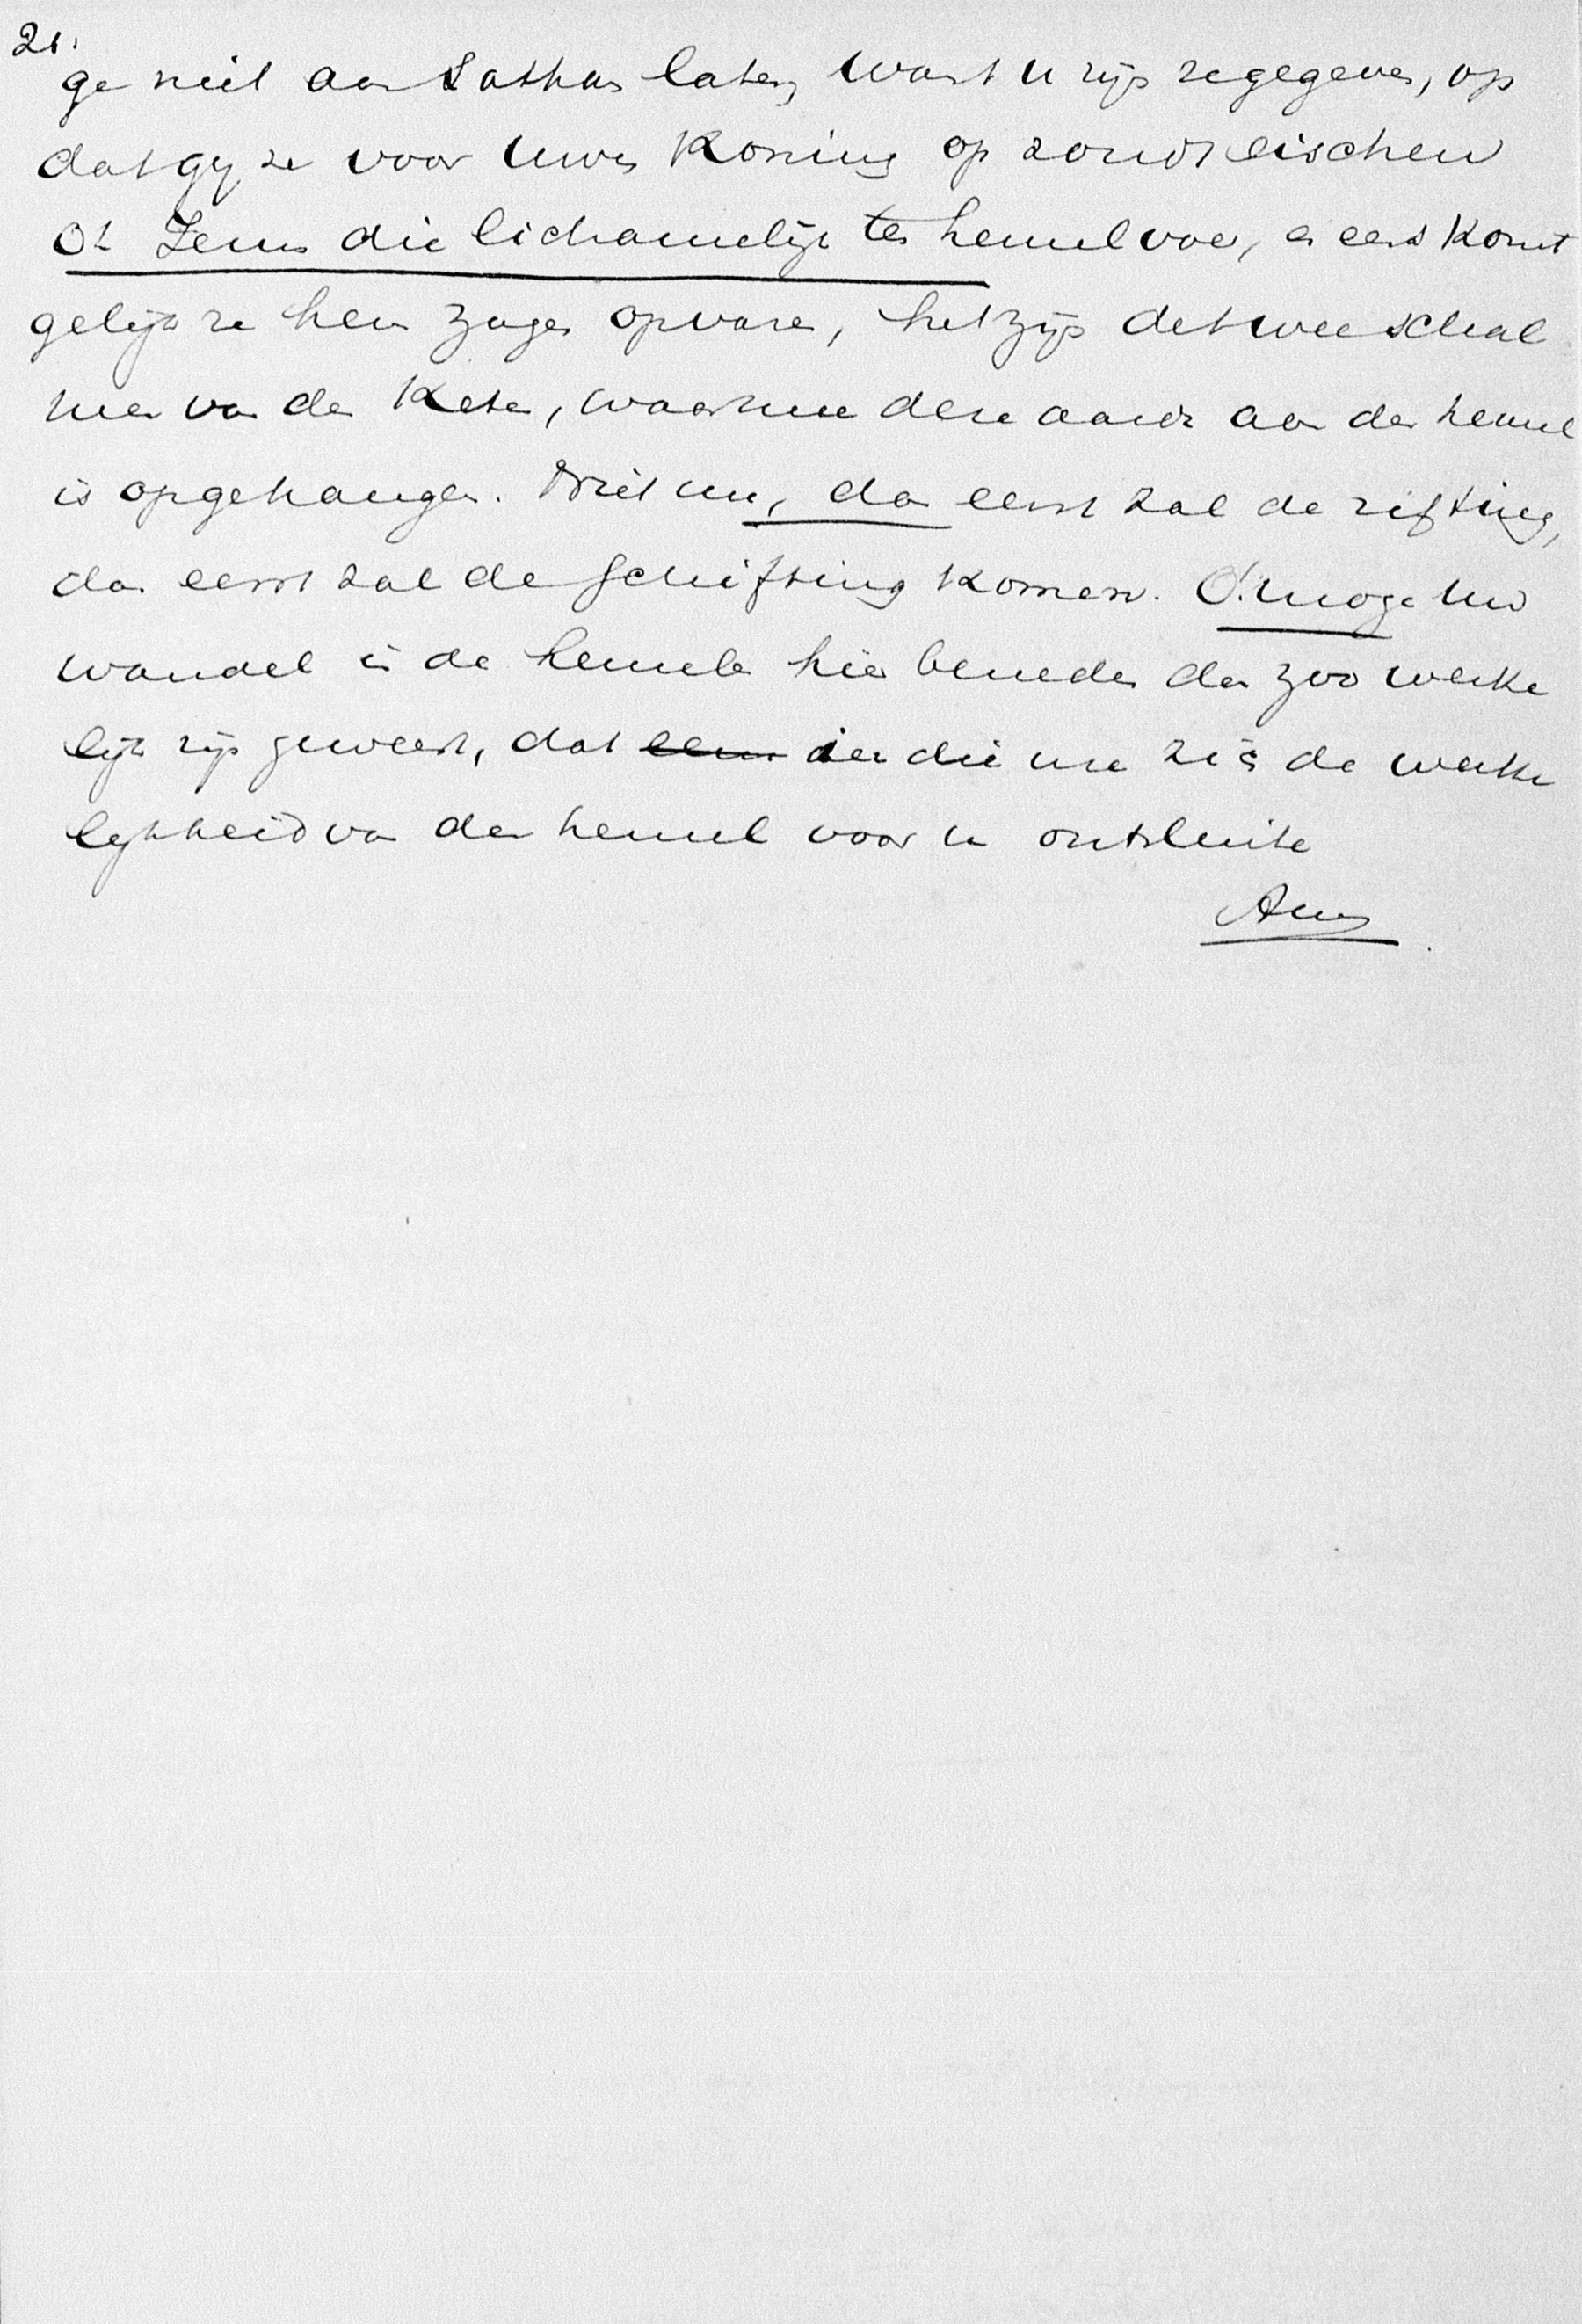 21.
ge niet aan Sathan laten, want u zijn ze gegeven, op
dat gij ze voor uwen Koning op zoudt eischen
O! Jezus die lichamelijk ten hemel voer, en eens komt
gelijk ze hem zagen opvaren, het zijn de twee schal
men van de Keten, waarmee deze aarde aan den hemel
is opgehangen. Niet nu, dan eerst zal de zifting,
dan eerst zal de schifting komen. O! moge uw
wandel in de hemelen hier beneden dan zoo werke
lijk zijn geweest, dat eens in die ure zich de werke
lijkheid van den hemel voor u ontsluite
Amen